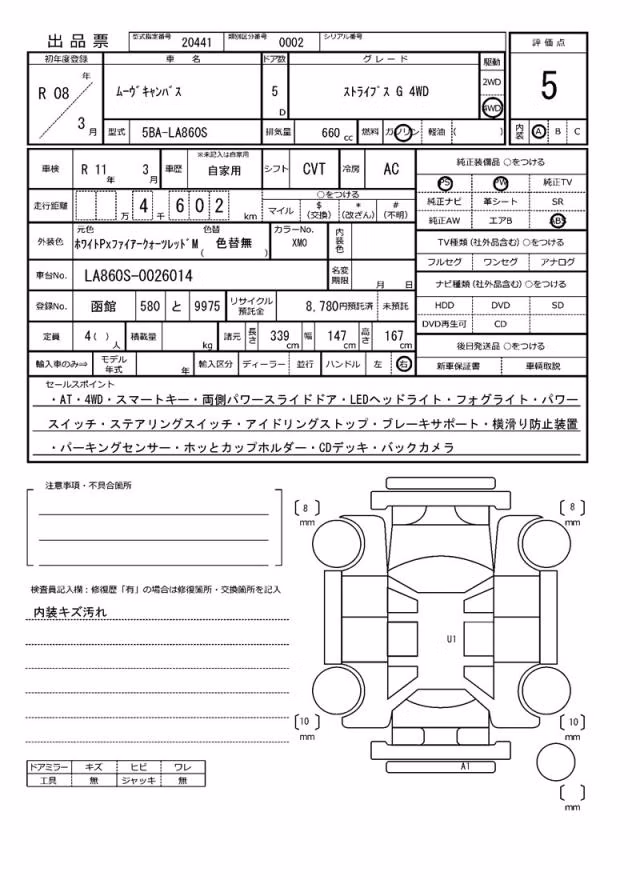 出品票 型式指定番号 20441 類別区分番号 0002 シリアル番号
評価点
5
内装 A B C
初年度登録 車名 ドア数 グレード 駆動
R 08 年 3 月 ムーヴキャンバス 5 D ストライプス G 4WD 2WD 4WD
型式 5BA-LA860S 排気量 660 cc 燃料 ガソリン 軽油 ( )
車検 R 11 年 3 月 車歴 ※未記入は自家用 自家用 シフト CVT 冷房 AC
走行距離 万 4 千 6 0 2 km
○をつける
マイル $(交換) *(改ざん) #(不明)
外装色 元色 ホワイトPxファイアークォーツレッドM 色替 ( 色替無 ) カラーNo. XMO 内装色
車台No. LA860S-0026014 名変期限 月 日
登録No. 函館 580 と 9975 リサイクル預託金 8,780円預託済 未預託
定員 4( ) 人 積載量 kg 諸元 長さ 339 cm 幅 147 cm 高さ 167 cm
輸入車のみ⇒ モデル年式 年 輸入区分 ディーラー 並行 ハンドル 左 右
純正装備品 ○をつける
PS PW 純正TV
純正ナビ 革シート SR
純正AW エアB ABS
TV種類 (社外品含む) ○をつける
フルセグ ワンセグ アナログ
ナビ種類 (社外品含む) ○をつける
HDD DVD SD
DVD再生可 CD
後日発送品 ○をつける
新車保証書 車輌取説
セールスポイント
・AT・4WD・スマートキー・両側パワースライドドア・LEDヘッドライト・フォグライト・パワー
スイッチ・ステアリングスイッチ・アイドリングストップ・ブレーキサポート・横滑り防止装置
・パーキングセンサー・ホッとカップホルダー・CDデッキ・バックカメラ
注意事項・不具合箇所
検査員記入欄：修復歴「有」の場合は修復箇所・交換箇所を記入
内装キズ汚れ
ドアミラー キズ ヒビ ワレ
工具 無 ジャッキ 無
[ 8 ] mm
[ 8 ] mm
U1
[ 10 ] mm
[ 10 ] mm
A1
[ ] mm